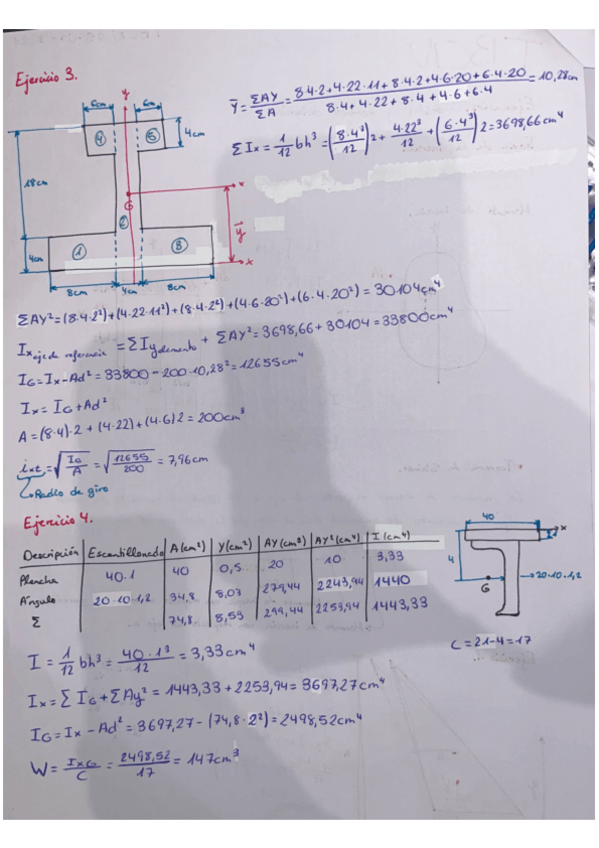 Ejercicio 3.
Ȳ = ΣAY / ΣA = (8·4·2+4·22·11+8·4·2+4·6·20+6·4·20) / (8·4+4·22+8·4+4·6+6·4) = 10,28cm
ΣIx = 1/12 bh³ = (8·4³/12)2 + 4·22³/12 + (6·4³/12)2 = 3698,66cm⁴
6cm 6cm
y
4 5 4cm
18cm
x
G
2
ȳ
1 3
4cm
x
8cm 4cm 8cm
ΣAY² = (8·4·2²)+(4·22·11²)+(8·4·2²)+(4·6·20²)+(6·4·20²) = 30104cm⁴
Ix eje de referencia = ΣIy elemento + ΣAY² = 3698,66+30104 = 33800cm⁴
IG = Ix-Ad² = 33800 - 200·10,28² = 12655cm⁴
Ix = IG+Ad²
A = (8·4)·2 + (4·22)+(4·6)2 = 200cm³
ixt = √(IG/A) = √(12655/200) = 7,96cm
Radio de giro
Ejercicio 4.
Descripción Escantillonado A(cm²) Y(cm²) AY(cm³) AY²(cm⁴) I(cm⁴)
Plancha 40·1 40 0,5 20 10 3,33
Ángulo 20·10·1,2 34,8 8,03 279,44 2243,94 1440
Σ 74,8 8,53 299,44 2253,94 1443,33
40
x
1
4
G
20·10·1,2
C = 21-4 = 17
I = 1/12 bh³ = 40·1³/12 = 3,33cm⁴
Ix = ΣIG+ΣAy² = 1443,33 + 2253,94 = 3697,27cm⁴
IG = Ix - Ad² = 3697,27 - (74,8·2²) = 2498,52cm⁴
W = IxG/C = 2498,52/17 = 147cm³